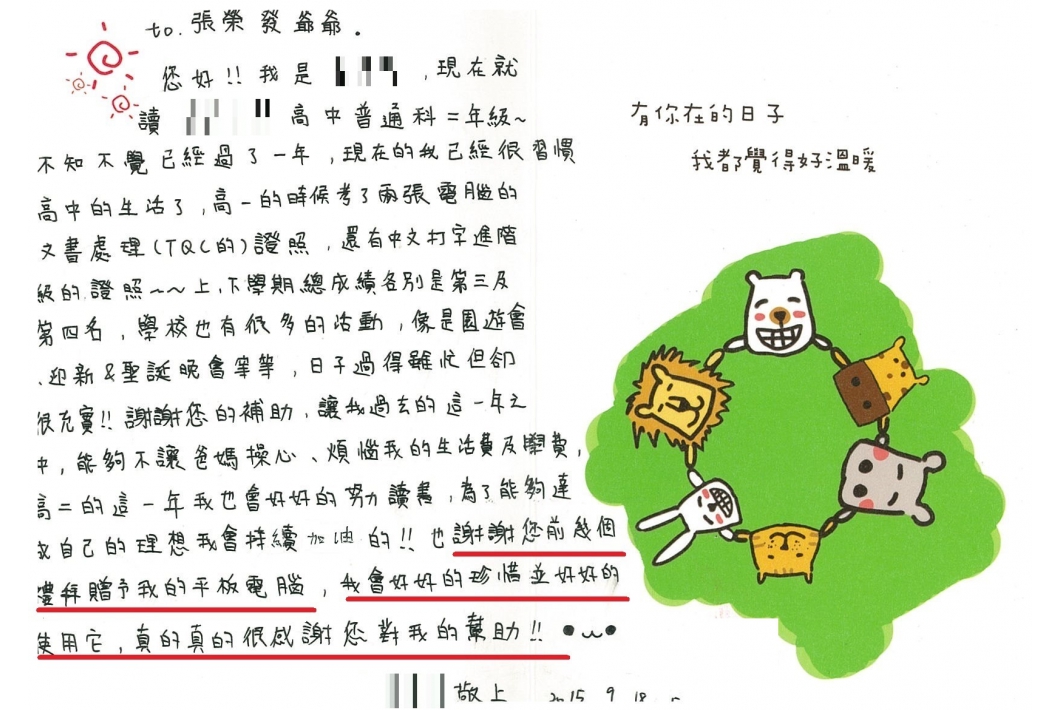 to. 張榮發爺爺.
您好!! 我是 ,現在就
讀 高中普通科二年級~
不知不覺已經過了一年,現在的我已經很習慣
高中的生活了,高一的時候考了兩張電腦的
文書處理(TQC的)證照,還有中文打字進階
級的證照~~上,下學期總成績各別是第三及
第四名,學校也有很多的活動,像是園遊會
、迎新&聖誕晚會等等,日子過得雖忙但卻
很充實!!謝謝您的補助,讓我過去的這一年之
中,能夠不讓爸媽操心、煩惱我的生活費及學費,
高二的這一年我也會好好的努力讀書,為了能夠達
成自己的理想我會持續加油的!!也謝謝您前幾個
禮拜贈予我的平板電腦,我會好好的珍惜並好好的
使用它,真的真的很感謝您對我的幫助!!
敬上 2015 9 18
有你在的日子
我都覺得好溫暖